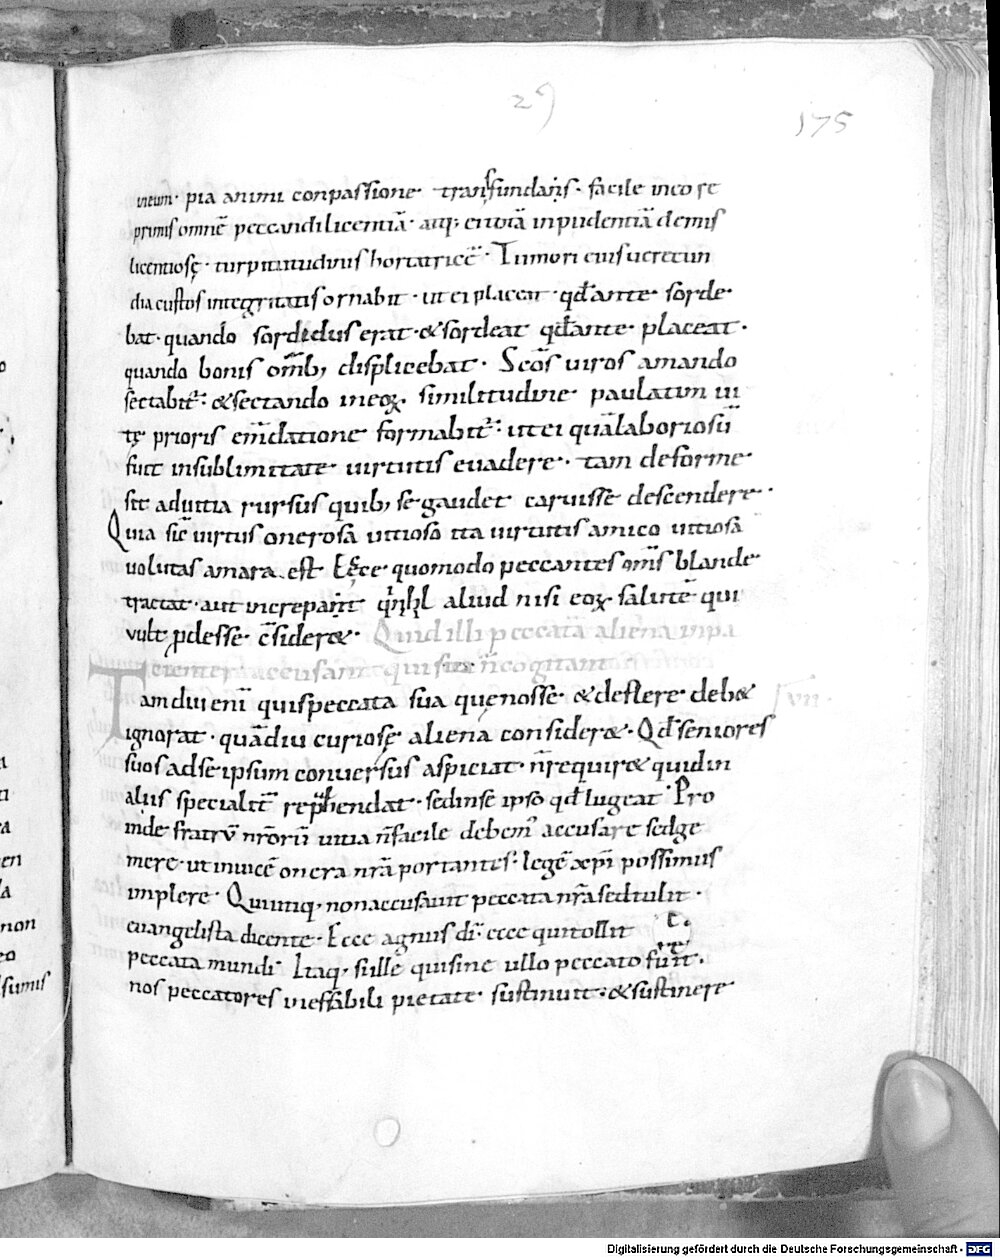 29
175
meum· pia animi conpassione· transfundaris· facile in eo re
primis omnē peccandi licentiā· atq; en totā inpudentiā demis
licentiosę· turpitudinis hortatricē· Timori eius uerecun
dia custos integritatis ornabit· ut ei placeat· qđ ante· sorde
bat· quando sordidus erat· & sordeat qđ ante· placeat·
quando bonis om̄ib; displicebat· Scōs uiros amando
sectabit̄· & sectando in eoꝝ· similitudine paulatim ui
tę prioris em̄datione formabit̄· ut ei quā laboriosū
fuit in sublimitate· uirtutis euadere· tam deforme·
sit ad uitia rursus quib; se gaudet caruisse descendere·
Quia sic̄ uirtus onerosa uitioso ita uirtutis amico uitiosa
uolutas amara est· Ecce· quomodo peccantes om̄s blande
tractat· aut increpant· aliud nisi eoꝝ salutē· qui
uult ꝓdesse· c̄sider&· Quid illi peccata aliena inpa
tienter accusant qui sua n̄ cogitant
Tamdiu enī quis peccata sua quę nosse· & deflere· deb&
lvii·
ignorat· quādiu curiosę aliena consider&· Qđ si mores
suos ad se ipsum conuersus aspiciat· n̄ requir& quid in
aliis specialit̄ rep̄hendat· sed in se ipso qđ lugeat· Pro
inde fratrū nr̄orū uitia n̄ facile debem᾽ accusare sed ge
mere· ut inuicē onera nr̄a portantes· legē xp̄i possimus
implere· Qui utiq; non accusauit peccata nr̄a sed tulit·
euangelista dicente· Ecce agnus dī· ecce qui tollit
peccata mundi· Itaq; si ille qui sine ullo peccato
nos peccatores ineffabili pietate· sustinuit· & sustinere
Digitalisierung gefördert durch die Deutsche Forschungsgemeinschaft - DFG